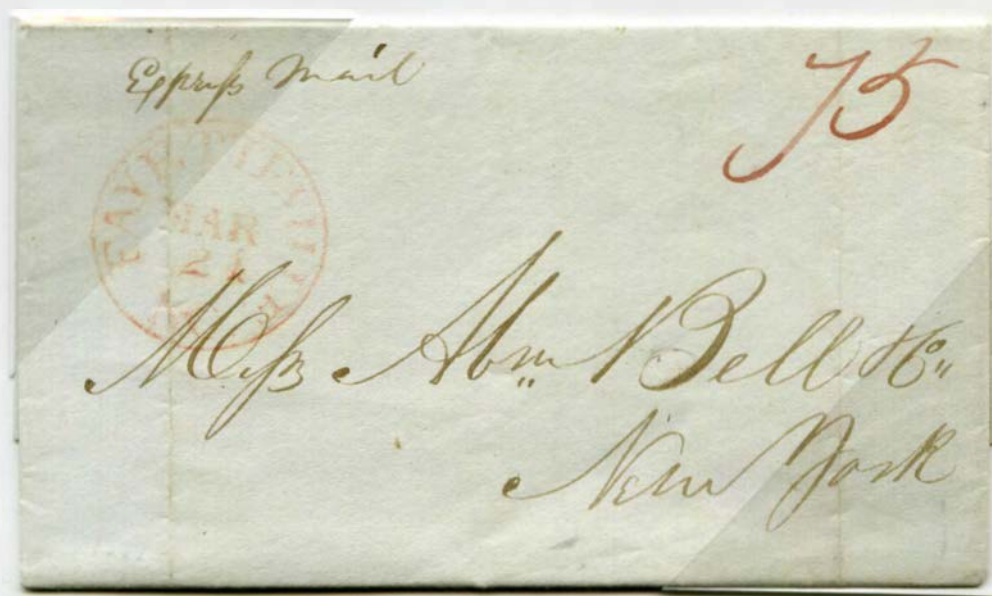 Expreſs Mail
75
FAYETTEVILLE
MAR
21
Meſs Abm Bell & Co
New York